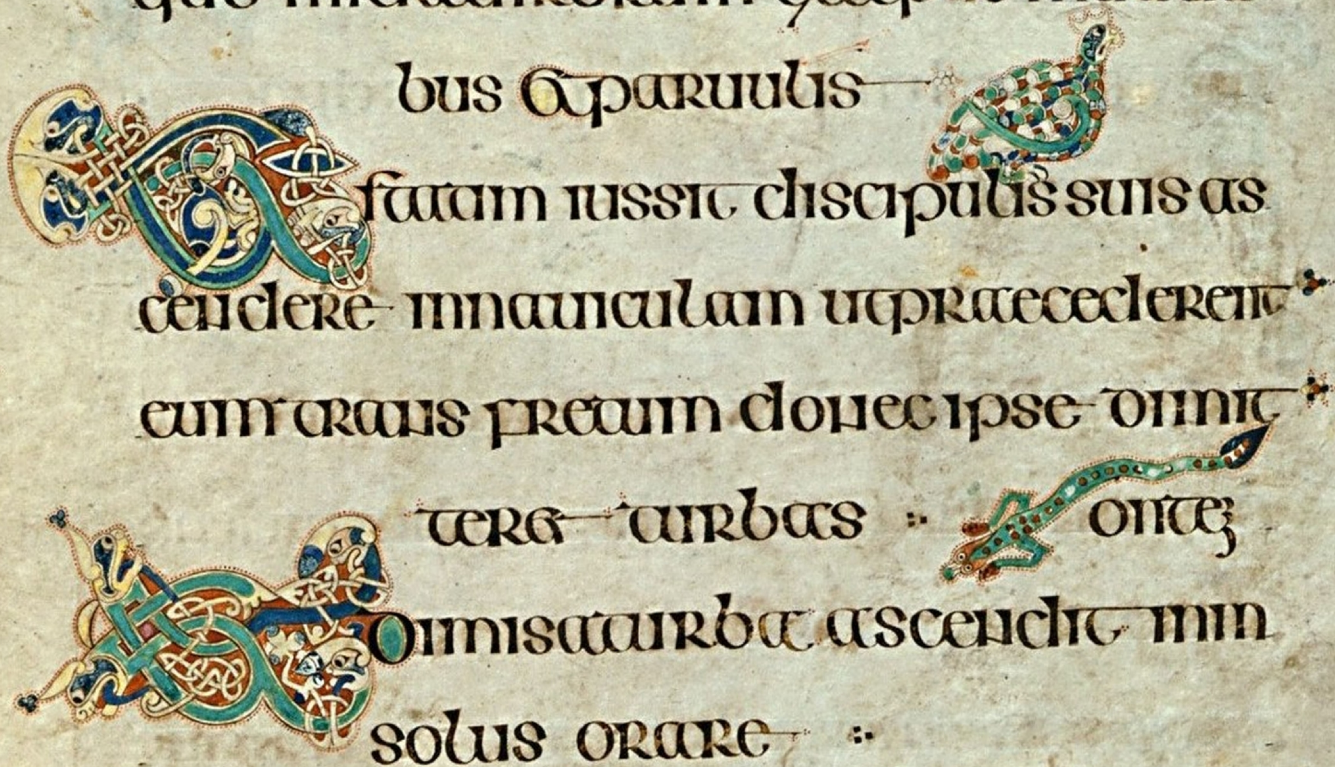 bus & paruulis
& statim iussit discipulis suis as
cendere innauiculam utpraecederent
eum trans fretum donec ipse dimit
ter& turbas ontem
& dimisaturba ascendit inm
solus orare